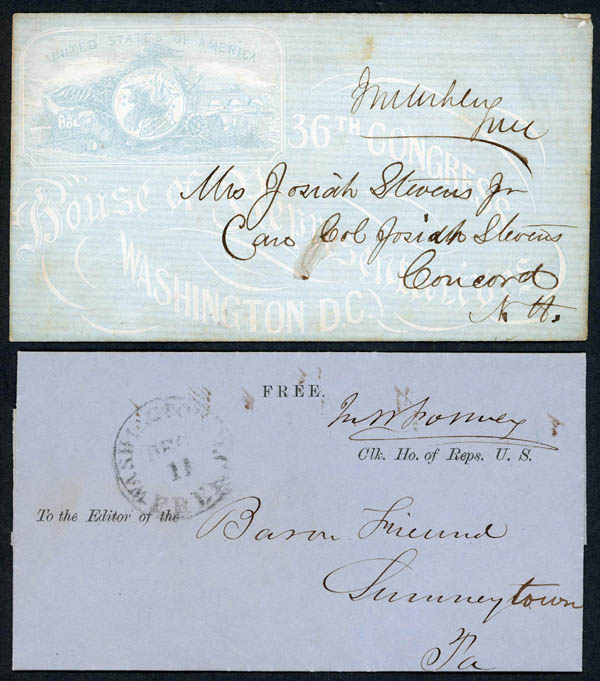 UNITED STATES OF AMERICA
36TH CONGRESS
House of Representatives
WASHINGTON D.C.
Free
Mrs Josiah Stevens Jr
Care Col Josiah Stevens
Concord
N. H.
FREE.
WASHINGTON
DEC
11
FREE
Clk. Ho. of Reps. U. S.
To the Editor of the
Sumneytown
Pa